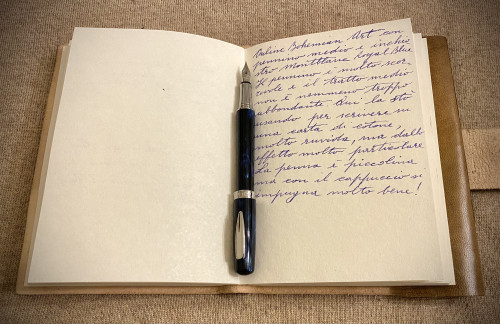 Aurline Bohemian Art con
pennino medio e inchio
stro Montblanc Royal Blue
Il pennino è molto scor
revole e il tratto medio
non è nemmeno troppo
abbondante. Qui la sto
usando per scrivere su
una carta di cotone,
molto ruvida, ma dallo
effetto molto particolare
La penna è piccolina
ma con il cappuccio si
impugna molto bene!